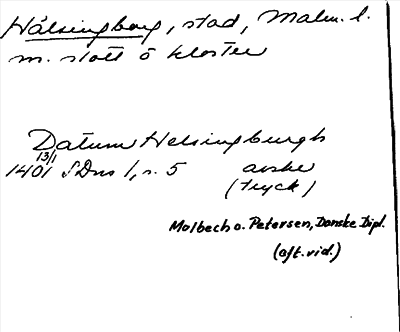 Hälsingborg, stad, Malm. l.
m. slott o kloster
Datum Helsingburgh
13/1
1401 SDns 1, s. 5 avskr
(tryck)
Molbech o. Petersen, Danske Dipl.
(aft. vid.)